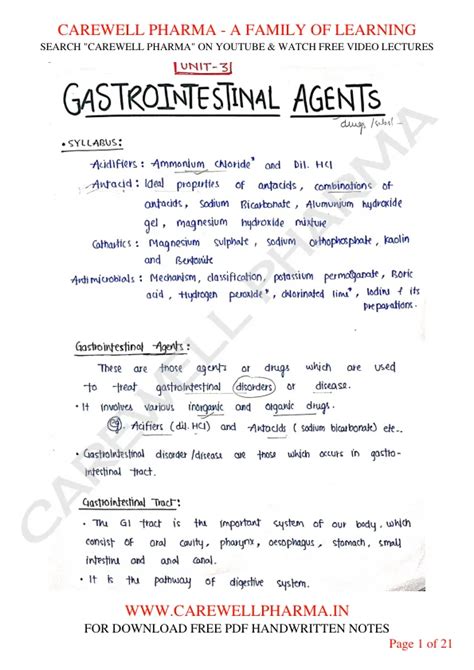 CAREWELL PHARMA - A FAMILY OF LEARNING
SEARCH "CAREWELL PHARMA" ON YOUTUBE & WATCH FREE VIDEO LECTURES
UNIT-3
GASTROINTESTINAL AGENTS
drugs /subst -
• SYLLABUS:
Acidifiers : Ammonium chloride* and Dil. HCl
Antacid : Ideal properties of antacids, combinations of
antacids, Sodium Bicarbonate*, Alumunium hydroxide
gel, magnesium hydroxide mixture
Cathartics : Magnesium sulphate, sodium orthophosphate, kaolin
and Bentonite
Antimicrobials : Mechanism, classification, potassium permanganate, Boric
acid, Hydrogen peroxide*, chlorinated lime*, Iodine & its
preparations.
Gastrointestinal Agents :
These are those agents or drugs which are used
to treat gastrointestinal disorders or disease.
• It involves various inorganic and organic drugs.
eg. Acifiers (dil. HCl) and Antacids (sodium bicarbonate) etc..
• Gastrointestinal disorder/disease are those which occurs in gastro-
intestinal tract.
Gastrointestinal Tract :
• The GI tract is the important system of our body, which
consist of oral cavity, pharynx, oesophagus, stomach, small
intestine and anal canal.
• It is the pathway of digestive system.
CAREWELL PHARMA
WWW.CAREWELLPHARMA.IN
FOR DOWNLOAD FREE PDF HANDWRITTEN NOTES
Page 1 of 21